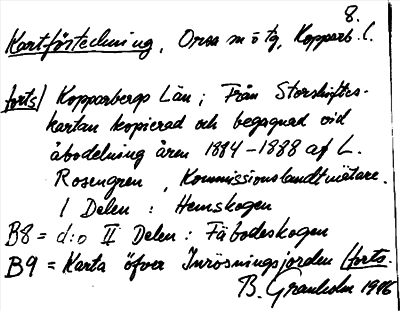 8.
Kartförteckning, Orsa sn o tg, Kopparb. l.
forts/ Kopparbergs Län; Från Storskiftes-
kartan kopierad och begagnad vid
åbodelning åren 1884-1888 af L.
Rosengren, Kommissionslandtmätare.
I Delen : Hemskogen
B8 = d:o II Delen : Fäbodeskogen
B9 = Karta öfver Inrösningsjorden /forts.
B. Granholm 1986